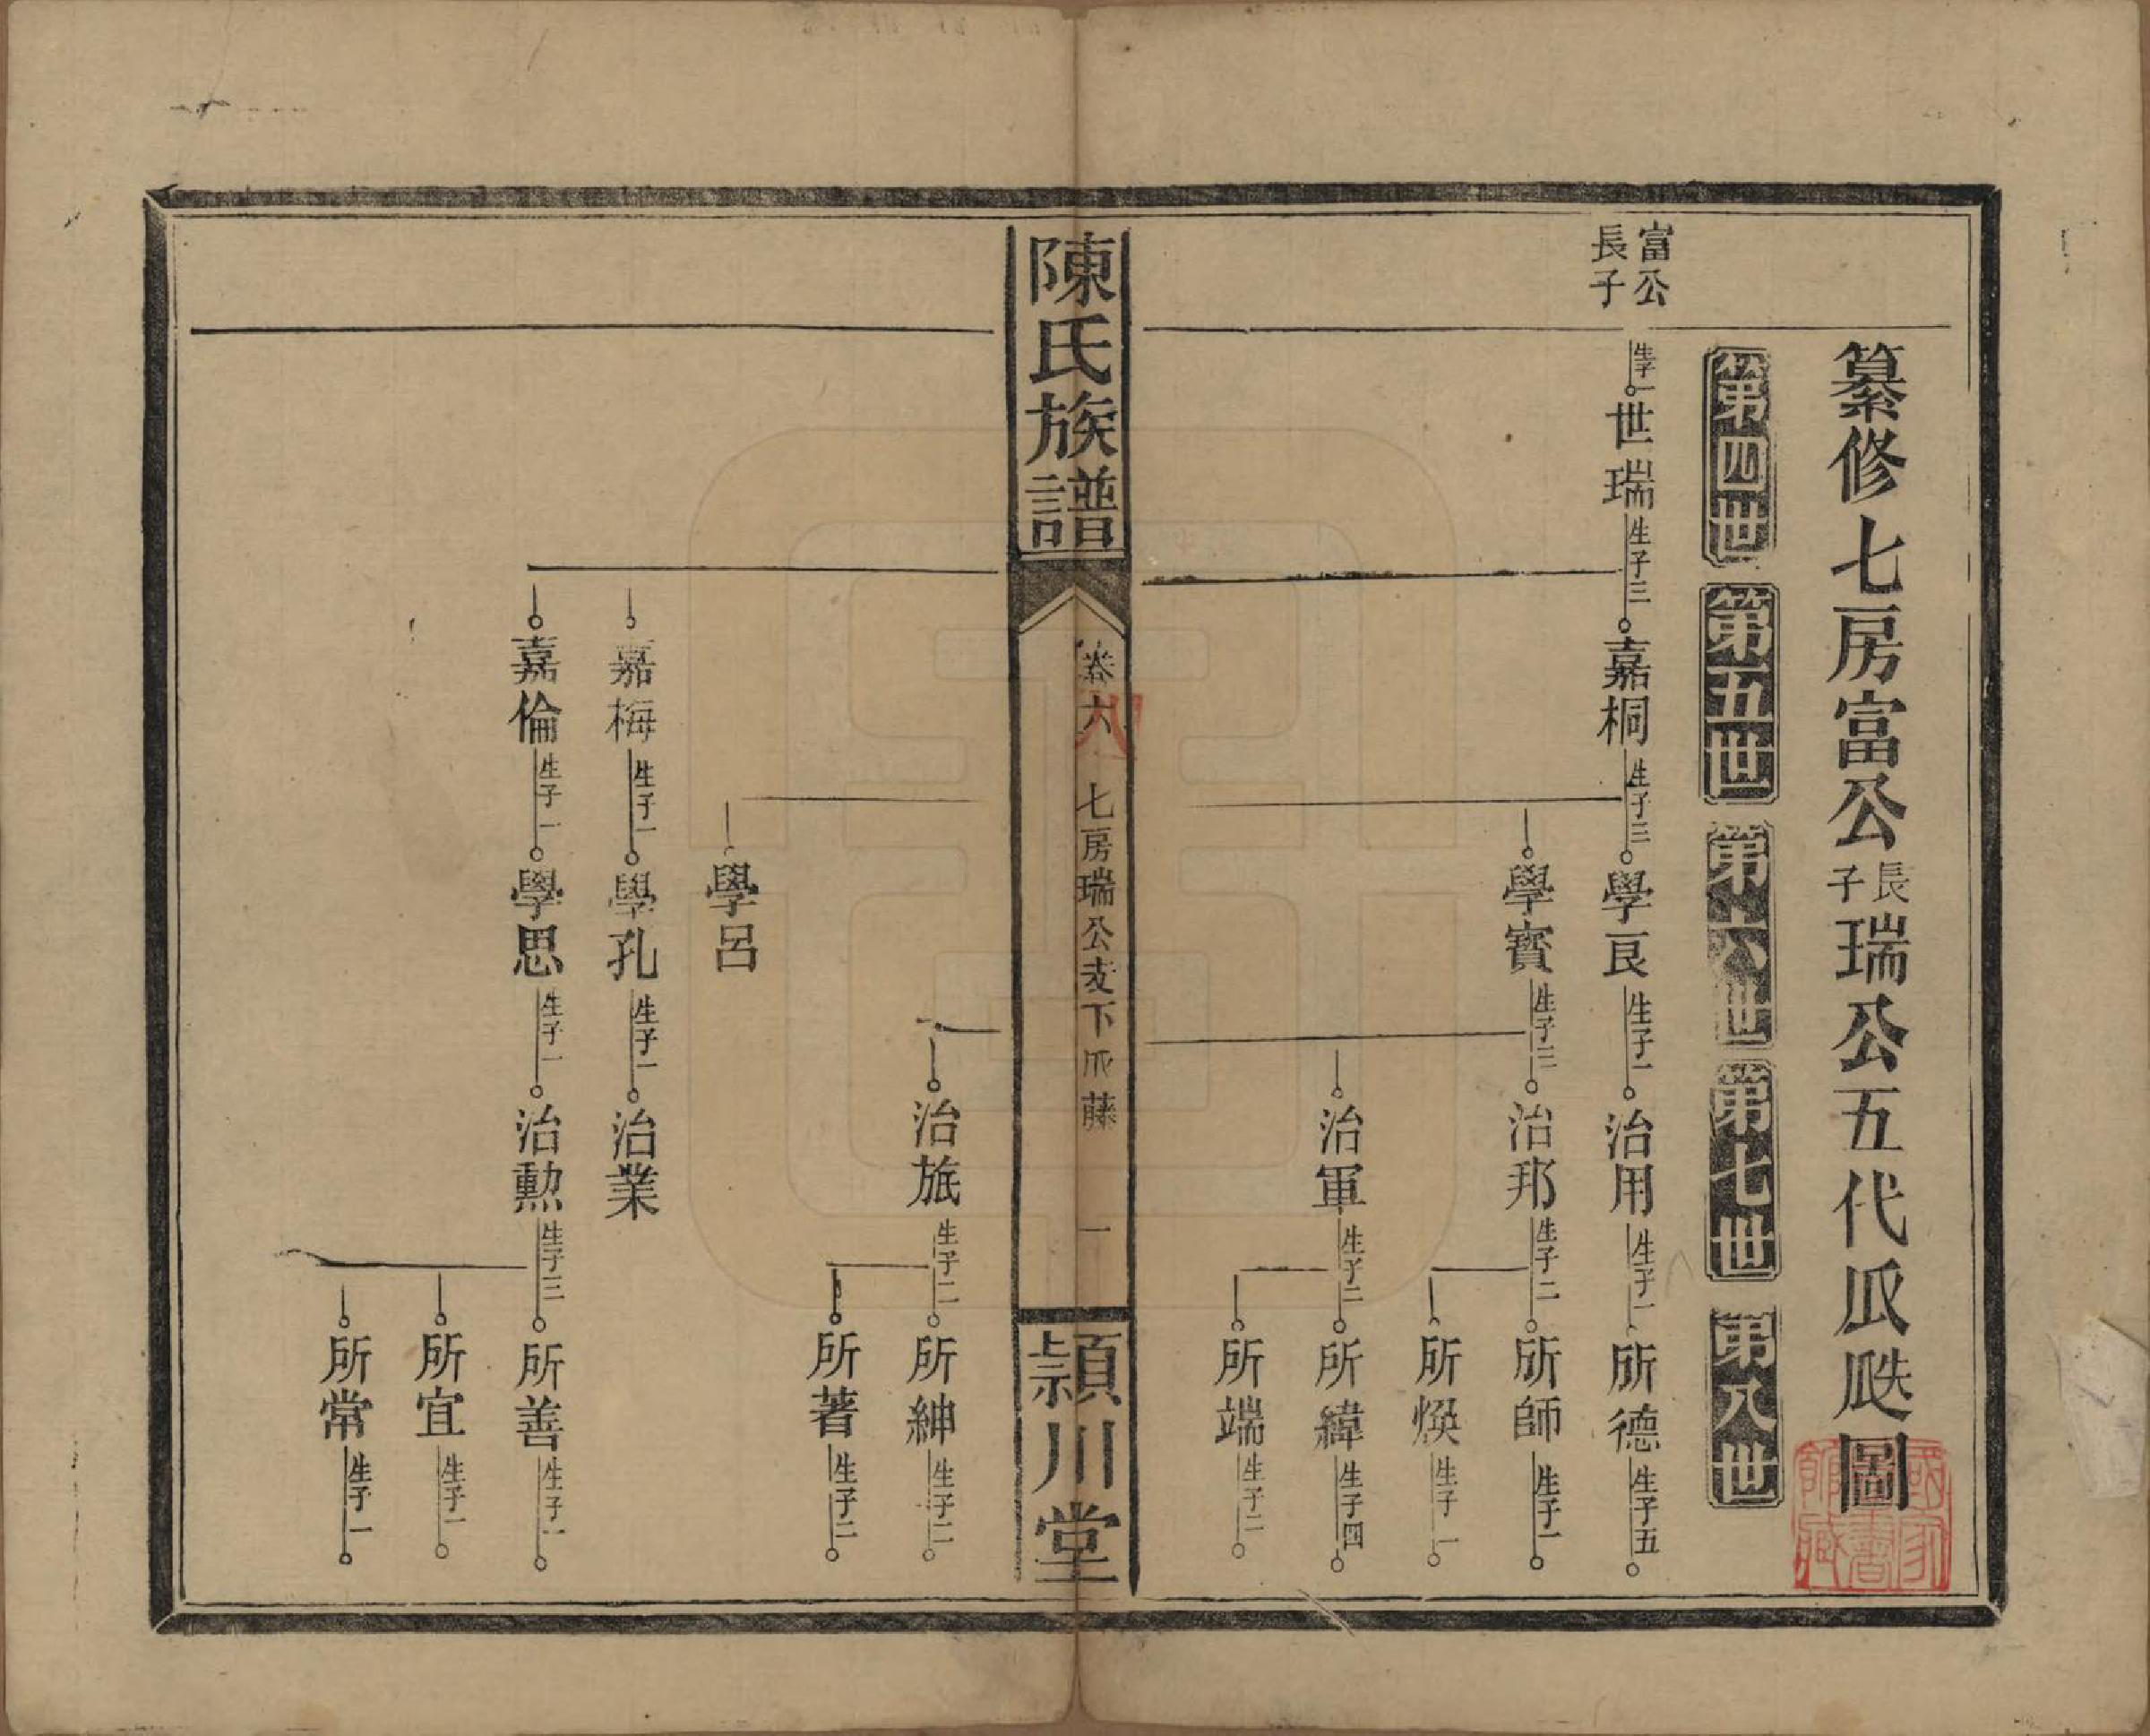 纂修七房富公長子瑞公五代瓜瓞圖
第四世 第五世 第六世 第七世 第八世
富公長子
生子一 世瑞 生子三 嘉桐 生子三 學良 生子一 治用 生子一 所德 生子五
學寶 生子三 治邦 生子二 所師 生子一
所煥 生子一
治軍 生子二 所緯 生子四
所端 生子二
陳氏族譜
卷六 七房瑞公支下瓜藤 一
八
潁川堂
治旅 生子二 所紳 生子二
所著 生子二
學呂
嘉梅 生子一 學孔 生子一 治業
嘉倫 生子一 學思 生子一 治勳 生子三 所善 生子一
所宜 生子一
所常 生子一
國家圖書館藏